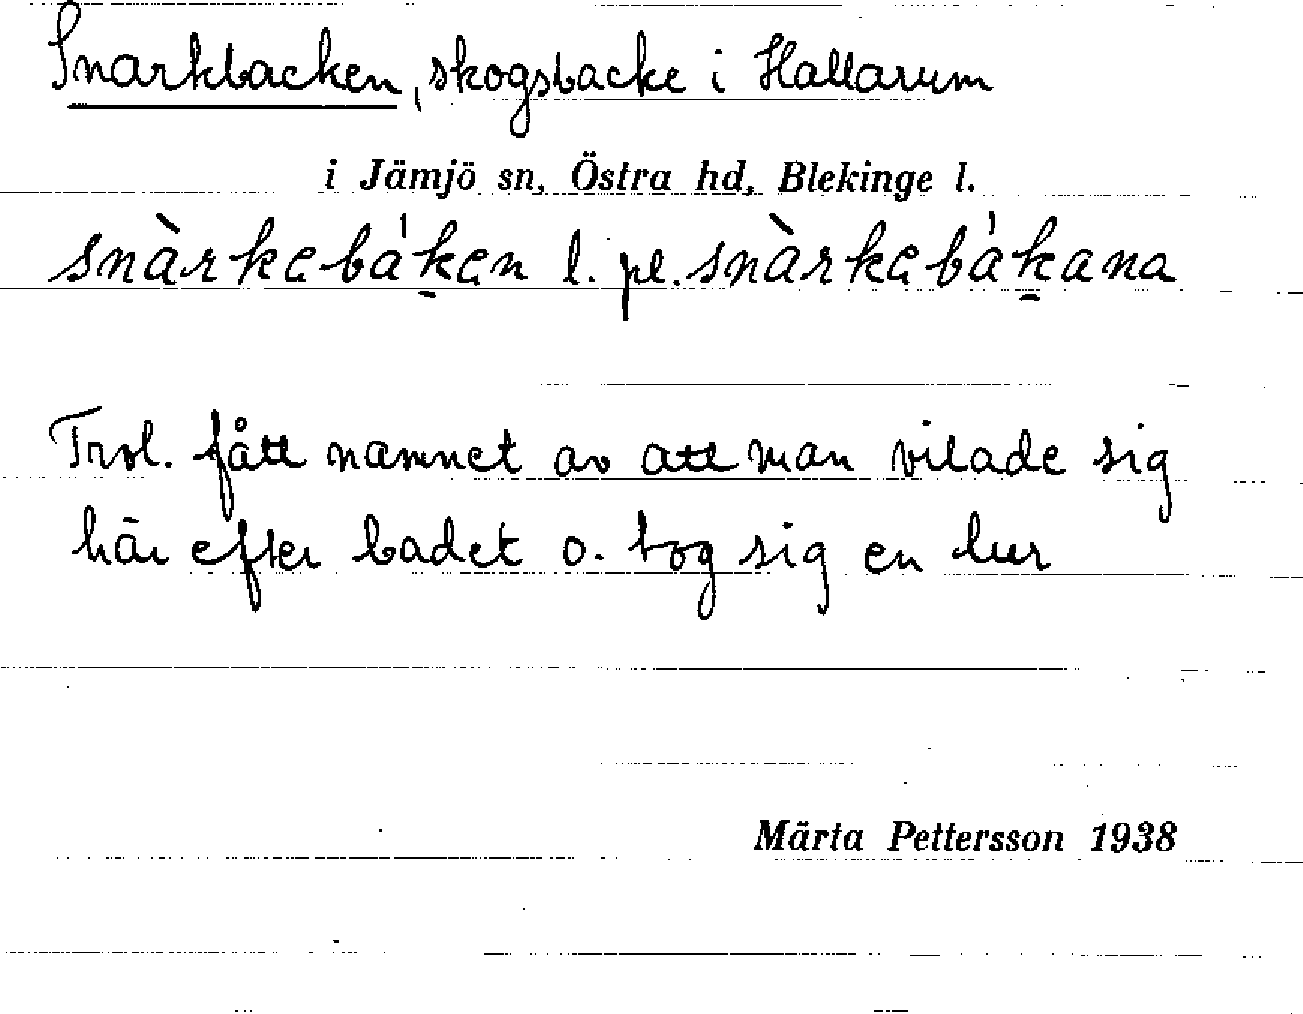 Snarkbacken, skogsbacke i Hallarum
i Jämjö sn, Östra hd, Blekinge l.
snàrkebá'k̲en l. pl. snàrkebá'k̲ana
Trol. fått namnet av att man vilade sig
här efter badet o. tog sig en lur
Märta Pettersson 1938